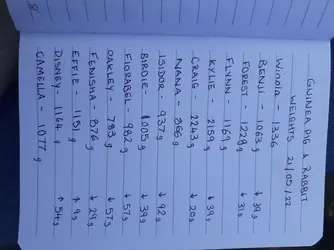 GUINEA PIG & RABBIT
WEIGHTS 21/05/22
WINNIE - 1336
BENJI - 1063g ↓ 39g
FOREST - 1228g ↓ 31g
FLYNN - 1169g
KYLIE - 2159g ↓ 39g
CRAIG - 2243g ↓ 20g
NANA - 866g
ISIDOR - 937g ↓ 92g
BIRDIE - 1005g ↓ 39g
FLORABEL - 982g ↓ 57g
OAKLEY - 783g ↓ 57g
FENISHA - 876g ↓ 29g
EFFIE - 1151g ↑ 9g
DISNEY - 1164g ↑ 54g
CAMELLA - 1077g